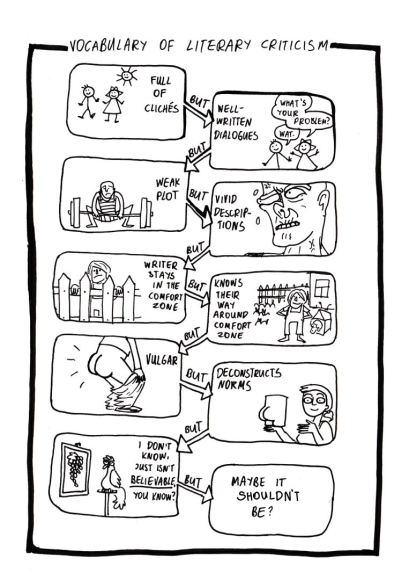 VOCABULARY OF LITERARY CRITICISM
FULL
OF
CLICHÉS
BUT
WELL-
WRITTEN
DIALOGUES
WHAT'S
YOUR
PROBLEM?
WAT..
BUT
WEAK
PLOT
BUT
VIVID
DESCRIP-
TIONS
BUT
WRITER
STAYS
IN THE
COMFORT
ZONE
BUT
KNOWS
THEIR
WAY
AROUND
COMFORT
ZONE
BUT
VULGAR
BUT
DECONSTRUCTS
NORMS
BUT
I DON'T
KNOW,
JUST ISN'T
BELIEVABLE,
YOU KNOW?
BUT
MAYBE IT
SHOULDN'T
BE?